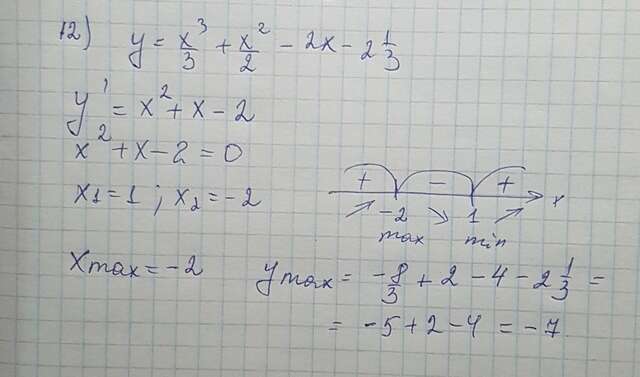 12) y = x³/3 + x²/2 - 2x - 2 1/3
y' = x² + x - 2
x² + x - 2 = 0
x1 = 1 ; x2 = -2
+ - + x
-2 1
max min
xmax = -2 ymax = -8/3 + 2 - 4 - 2 1/3 =
= -5 + 2 - 4 = -7